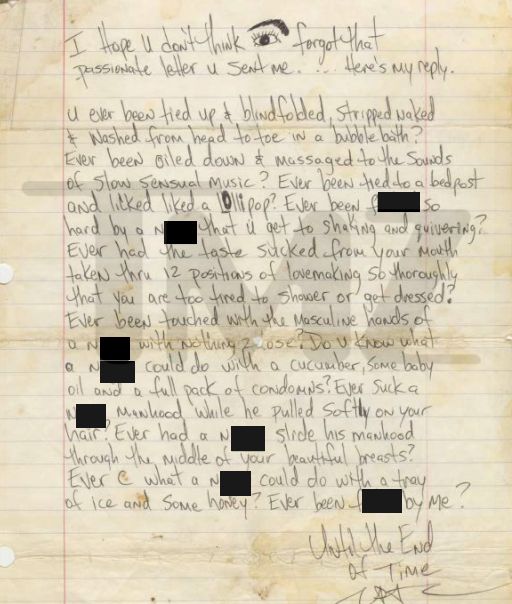 I Hope U don't think forgot that
passionate letter u sent me. ... Here's my reply.
U ever been tied up & blindfolded, stripped naked
& washed from head to toe in a bubble bath?
Ever been oiled down & massaged to the sounds
of slow sensual music? Ever been tied to a bedpost
and licked liked a lollipop? Ever been f so
hard by a N that u get to shaking and quivering?
Ever had the taste sucked from your mouth
taken thru 12 positions of lovemaking so thoroughly
that you are too tired to shower or get dressed?
Ever been touched with the masculine hands of
a N with nothing 2 lose? Do U know what
a N could do with a cucumber, some baby
oil and a full pack of condomns? Ever suck a
N manhood while he pulled softly on your
hair? Ever had a N slide his manhood
through the middle of your beautiful breasts?
Ever C what a N could do with a tray
of ice and some honey? Ever been f by me?
Until the End
of Time
TMZ